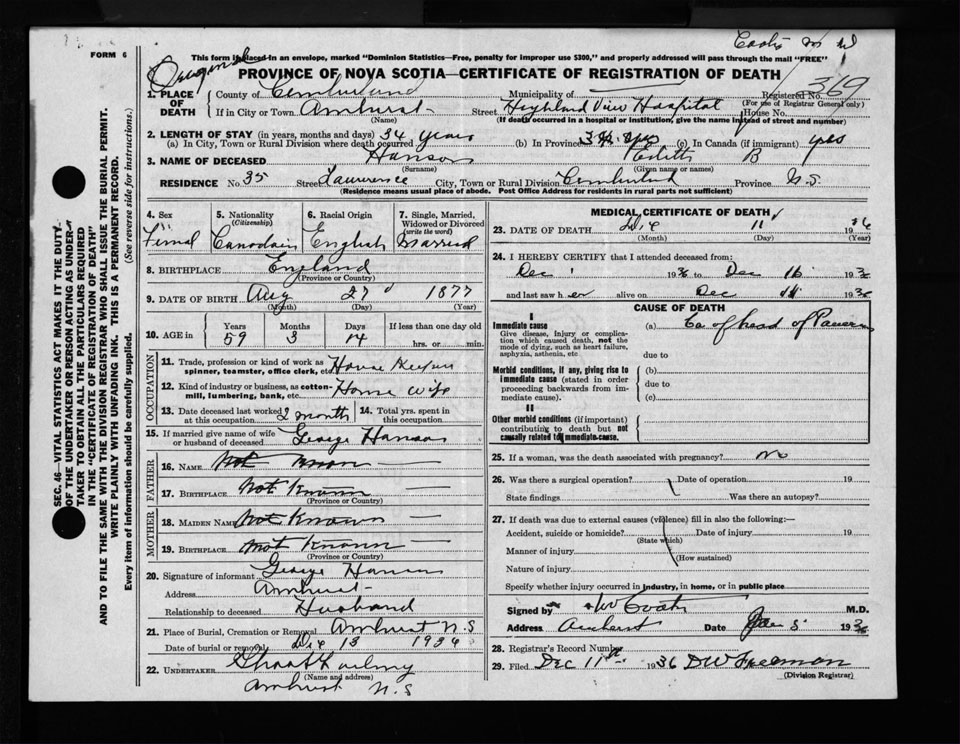 FORM 6
This form if placed in an envelope, marked "Dominion Statistics—Free, penalty for improper use $300," and properly addressed will pass through the mail "FREE"
PROVINCE OF NOVA SCOTIA—CERTIFICATE OF REGISTRATION OF DEATH
Registered No. 369
(For use of Registrar General only)
1. PLACE OF DEATH
County of Cumberland Municipality of
If in City or Town Amherst Street Highland View Hospital House No.
(Name) (If death occurred in a hospital or institution, give the name instead of street and number)
2. LENGTH OF STAY (in years, months and days)
(a) In City, Town or Rural Division where death occurred 34 years (b) In Province 34 yrs (c) In Canada (if immigrant) yes
3. NAME OF DECEASED Hanson B
(Surname) (Given name or names)
RESIDENCE No. 35 Street Lawrence City, Town or Rural Division Cumberland Province N.S.
(Residence means usual place of abode. Post Office Address for residents in rural parts not sufficient)
4. Sex Femal
5. Nationality (Citizenship) Canadain
6. Racial Origin English
7. Single, Married, Widowed or Divorced (write the word) Married
8. BIRTHPLACE England
(Province or Country)
9. DATE OF BIRTH Aug 27 1877
(Month) (Day) (Year)
10. AGE in Years 59 Months 3 Days 14 If less than one day old hrs. or min.
OCCUPATION
11. Trade, profession or kind of work as spinner, teamster, office clerk, etc. House Keeper
12. Kind of industry or business, as cotton-mill, lumbering, bank, etc. Home wife
13. Date deceased last worked at this occupation 2 month 14. Total yrs. spent in this occupation
15. If married give name of wife or husband of deceased George Hanson
FATHER
16. NAME Not Known
17. BIRTHPLACE Not Known
(Province or Country)
MOTHER
18. MAIDEN NAME Not Known
19. BIRTHPLACE Not Known
(Province or Country)
20. Signature of informant George Hanson
Address Amherst
Relationship to deceased Husband
21. Place of Burial, Cremation or Removal Amherst N.S
Date of burial or removal Dec 13 1936
22. UNDERTAKER
(Name and address)
Amherst N.S
MEDICAL CERTIFICATE OF DEATH
23. DATE OF DEATH Dec 11 1936
(Month) (Day) (Year)
24. I HEREBY CERTIFY that I attended deceased from:
Dec 1 1936 to Dec 1936
and last saw her alive on Dec 1936
CAUSE OF DEATH
I
Immediate cause
Give disease, injury or complication which caused death, not the mode of dying, such as heart failure, asphyxia, asthenia, etc
(a) Ca of head of Pancreas
due to
Morbid conditions, if any, giving rise to immediate cause (stated in order proceeding backwards from immediate cause).
(b)
due to
(c)
II
Other morbid conditions (if important) contributing to death but not causally related to immediate cause.
25. If a woman, was the death associated with pregnancy? no
26. Was there a surgical operation? Date of operation 19
State findings Was there an autopsy?
27. If death was due to external causes (violence) fill in also the following:—
Accident, suicide or homicide? Date of injury 19
(State which)
Manner of injury
(How sustained)
Nature of injury
Specify whether injury occurred in industry, in home, or in public place
Signed by M.D.
Address Amherst Date 1936
28. Registrar's Record Number
29. Filed Dec 11th 1936 DW Freeman
(Division Registrar)
SEC. 46—VITAL STATISTICS ACT MAKES IT THE DUTY
OF THE UNDERTAKER OR PERSON ACTING AS UNDERTAKER TO OBTAIN ALL THE PARTICULARS REQUIRED
IN THE "CERTIFICATE OF REGISTRATION OF DEATH"
AND TO FILE THE SAME WITH THE DIVISION REGISTRAR WHO SHALL ISSUE THE BURIAL PERMIT.
WRITE PLAINLY WITH UNFADING INK. THIS IS A PERMANENT RECORD.
Every item of information should be carefully supplied. (See reverse side for instructions.)